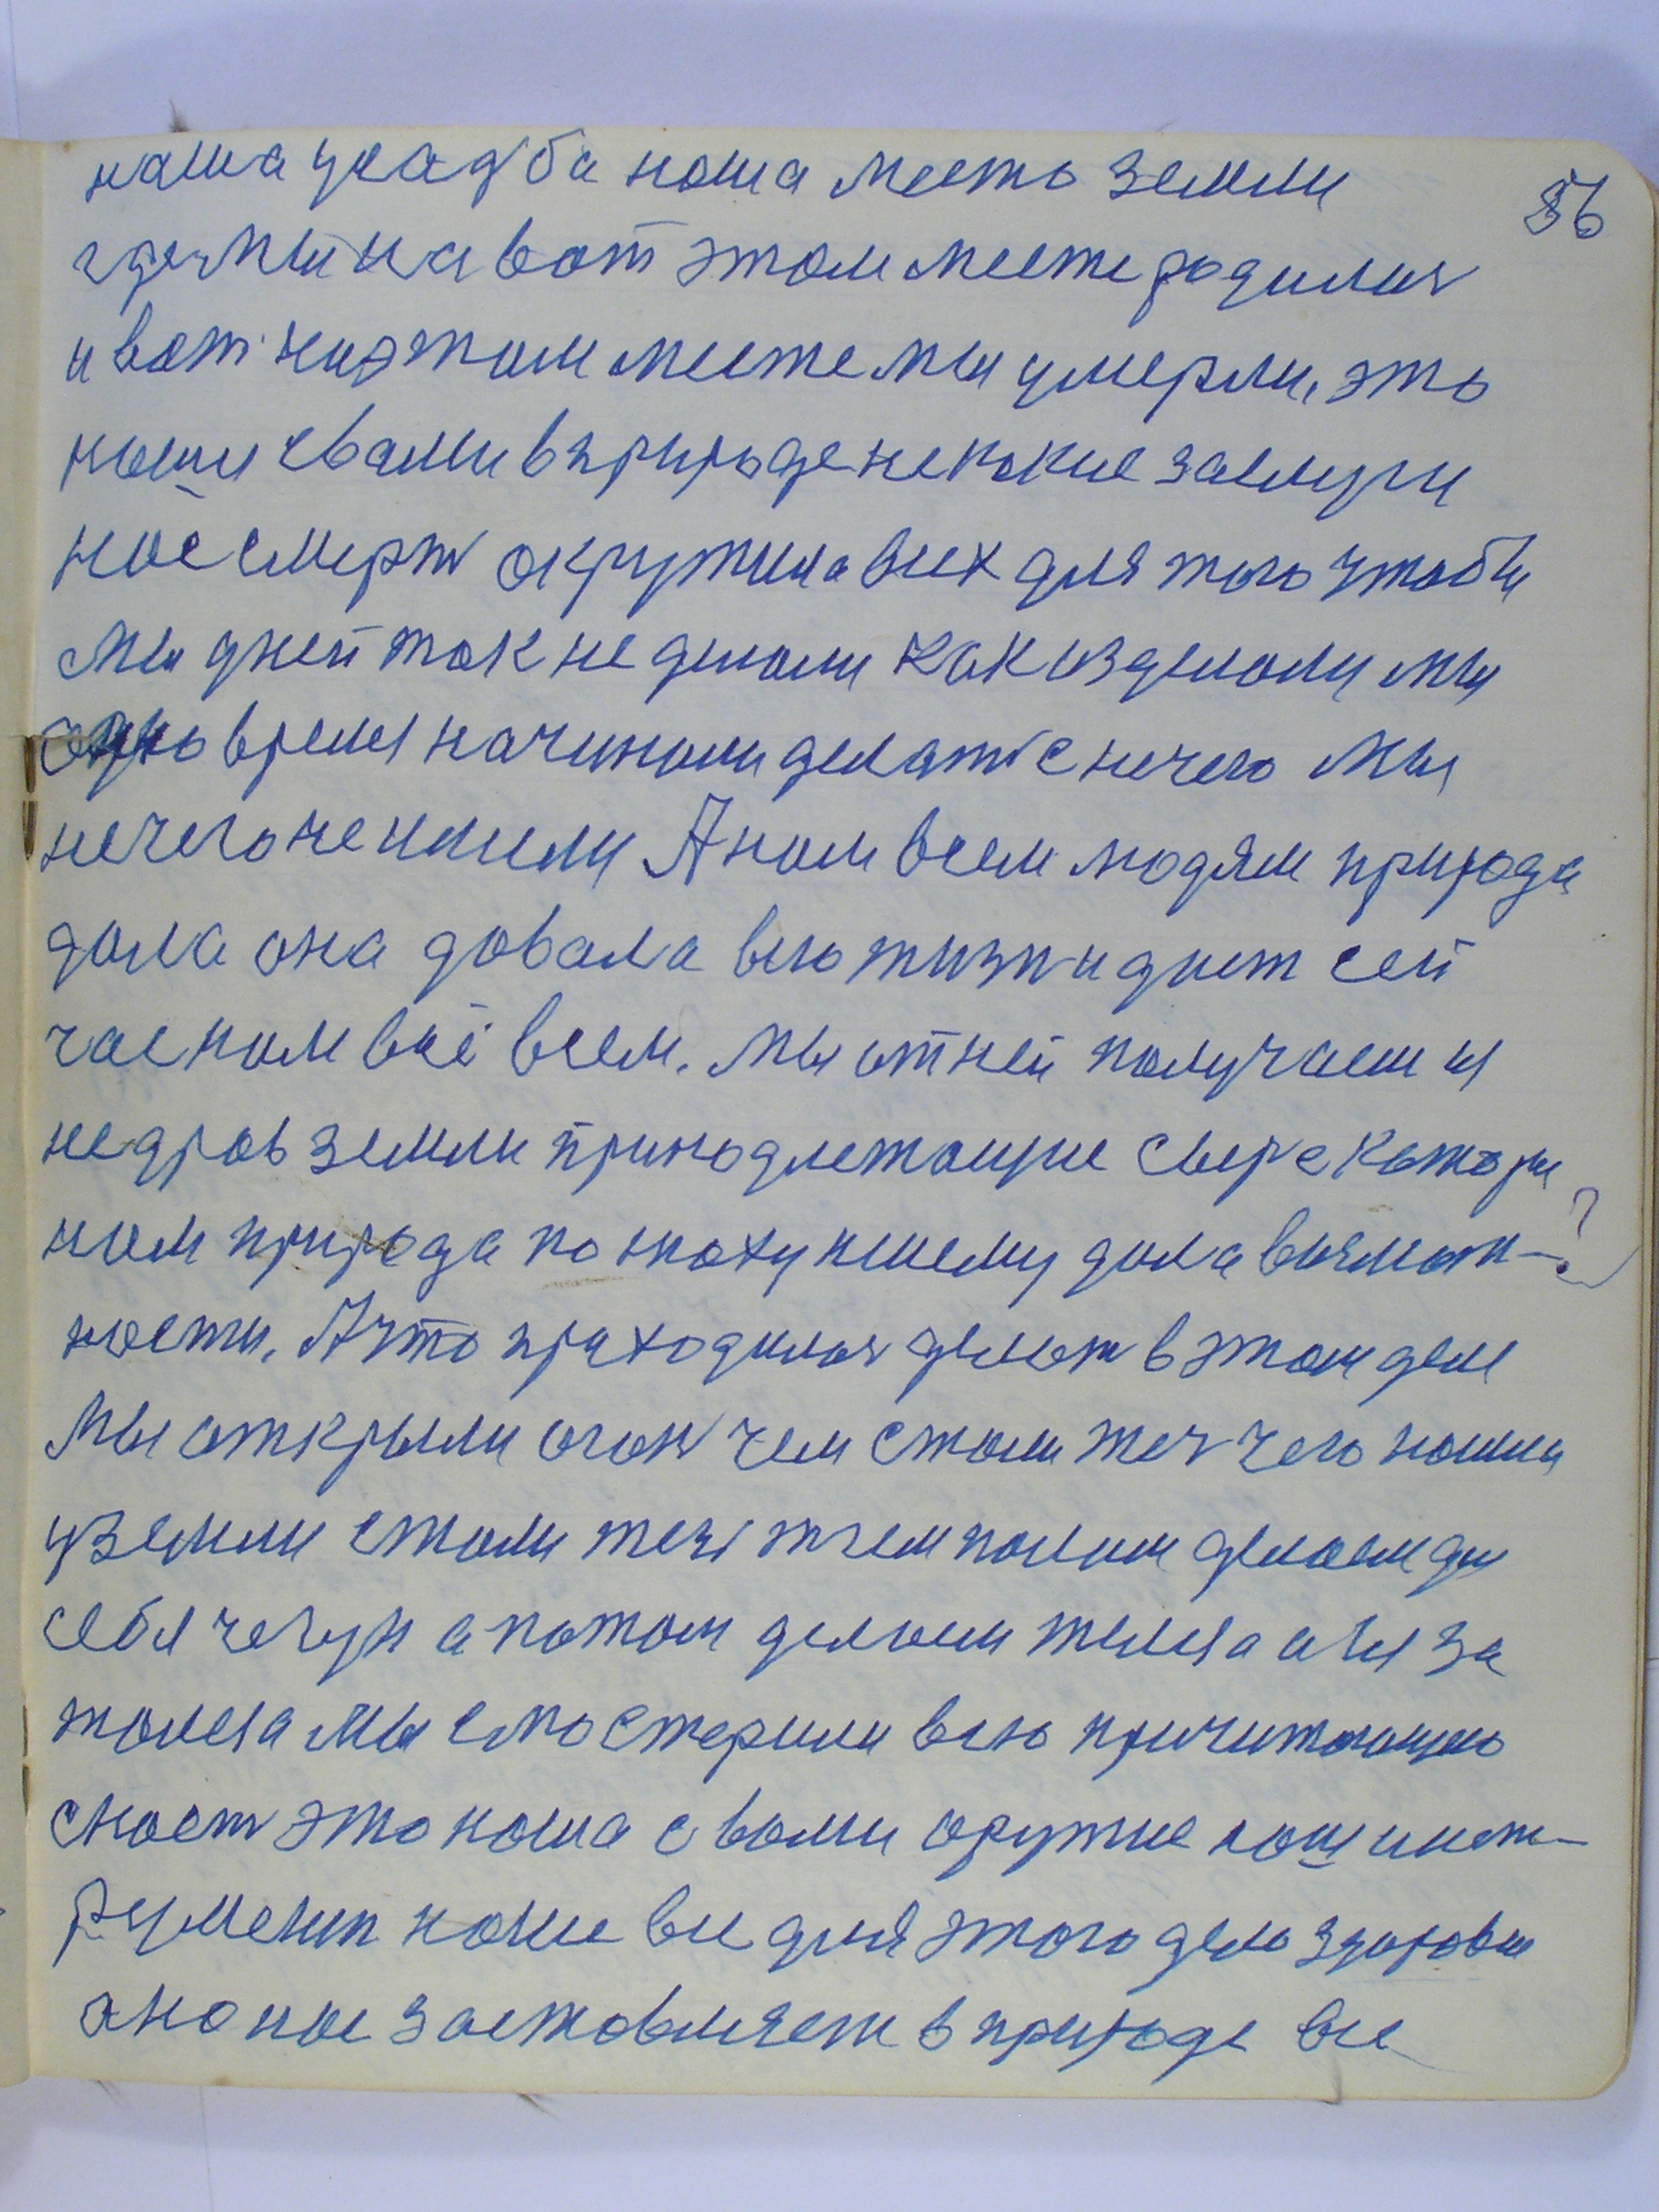 наша усадба наша место земли
56
где мы на вот этом месте родилися
и вот на этом месте мы умерли, это
наши с вами в природе некакие заслуги
нас смерть окружила всех для того чтобы
мы дней так не делали как изделали мы
одно время начинали делать с нечего мы
нечего не имели А нам всем людям природа
дала она довала всю жизнь и дает сей
час нам всё всем. мы от ней получаем из
недров земли принодлежащие сыре которы
нам природа по
дала
ности. А что приходилося делать в этом деле
мы открыли огонь чем стали жеч чего нашли
у земли стали жечь
делаем для
себя чегун а потом делаем железа а из за
железа мы смостерили всю причитающею
сность это наша с вами оружие наш инст-
румент наше все для этого дело здоровье
оно нас заставляет в природе все